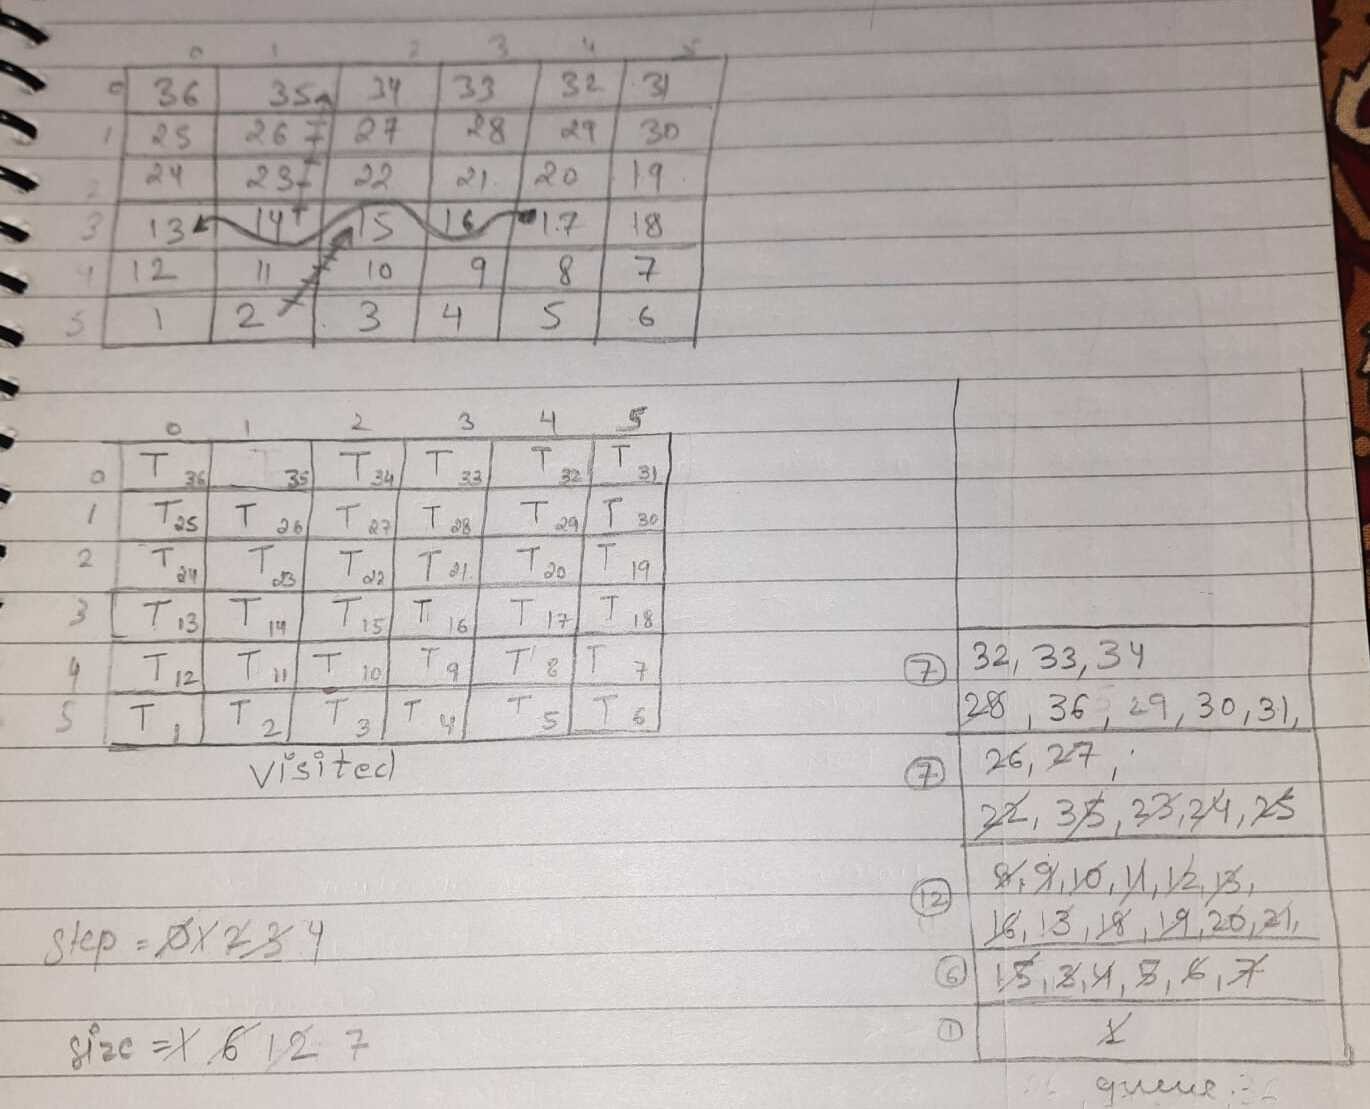 0 1 2 3 4 5
0 36 35 34 33 32 31
1 25 26 27 28 29 30
2 24 23 22 21 20 19
3 13 14 15 16 17 18
4 12 11 10 9 8 7
5 1 2 3 4 5 6
0 1 2 3 4 5
0 T 36 35 T 34 T 33 T 32 T 31
1 T 25 T 26 T 27 T 28 T 29 T 30
2 T 24 T 23 T 22 T 21 T 20 T 19
3 T 13 T 14 T 15 T 16 T 17 T 18
4 T 12 T 11 T 10 T 9 T 8 T 7
5 T 1 T 2 T 3 T 4 T 5 T 6
visited
7 32, 33, 34
28, 36, 29, 30, 31,
7 26, 27,
22, 35, 23, 24, 25
12 8, 9, 10, 11, 12, 13,
16, 13, 18, 19, 20, 21,
6 15, 3, 4, 5, 6, 7
1 1
queue
step = 0 1 2 3 4
size = 1 6 12 7